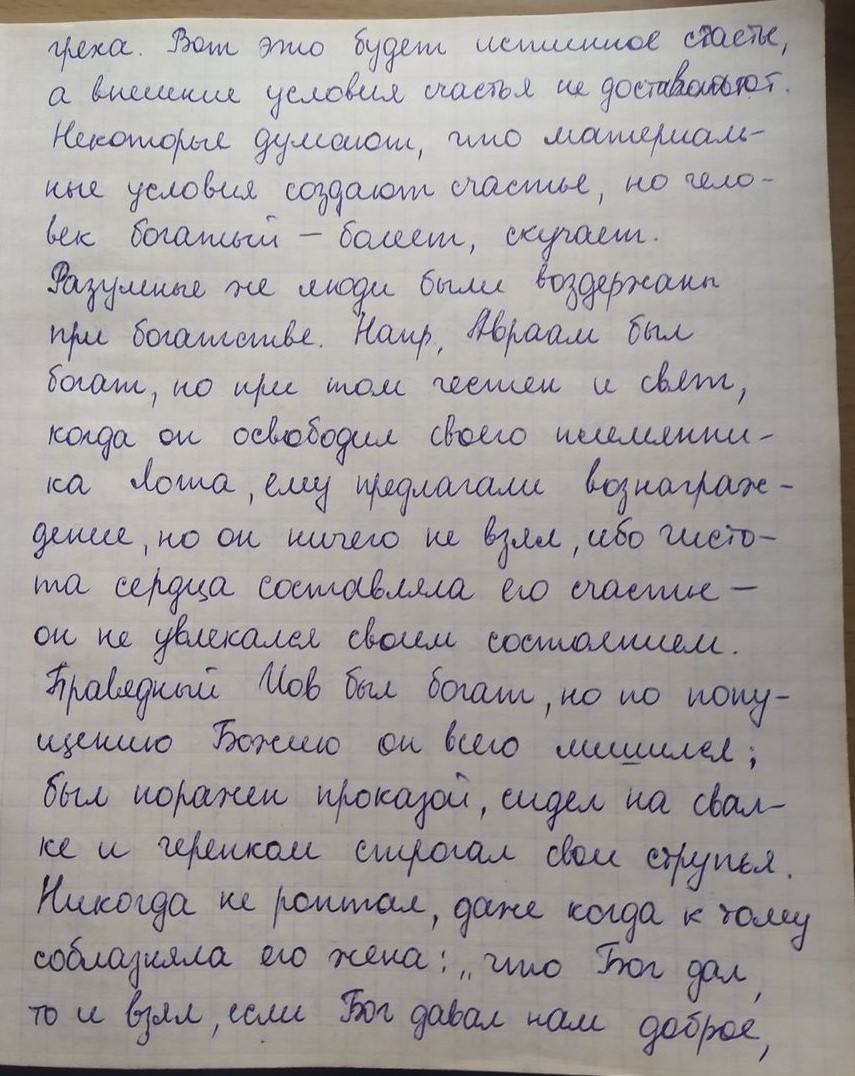 греха. Вот это будет истинное счастье,
а внешние условия счастья не доставляют.
Некоторые думают, что материаль-
ные условия создают счастье, но чело-
век богатый – болеет, скучает.
Разумные же люди были воздержаны
при богатстве. Напр., Авраам был
богат, но при том честен и свят,
когда он освободил своего племянни-
ка Лота, ему предлагали вознаграж-
дение, но он ничего не взял, ибо чисто-
та сердца составляла его счастье –
он не увлекался своим состоянием.
Праведный Иов был богат, но по попу-
щению Божию он всего лишился;
был поражен проказой, сидел на свал-
ке и черепком строгал свои струпья.
Никогда не роптал, даже когда к тому
соблазняла его жена: „что Бог дал,
то и взял, если Бог давал нам доброе,